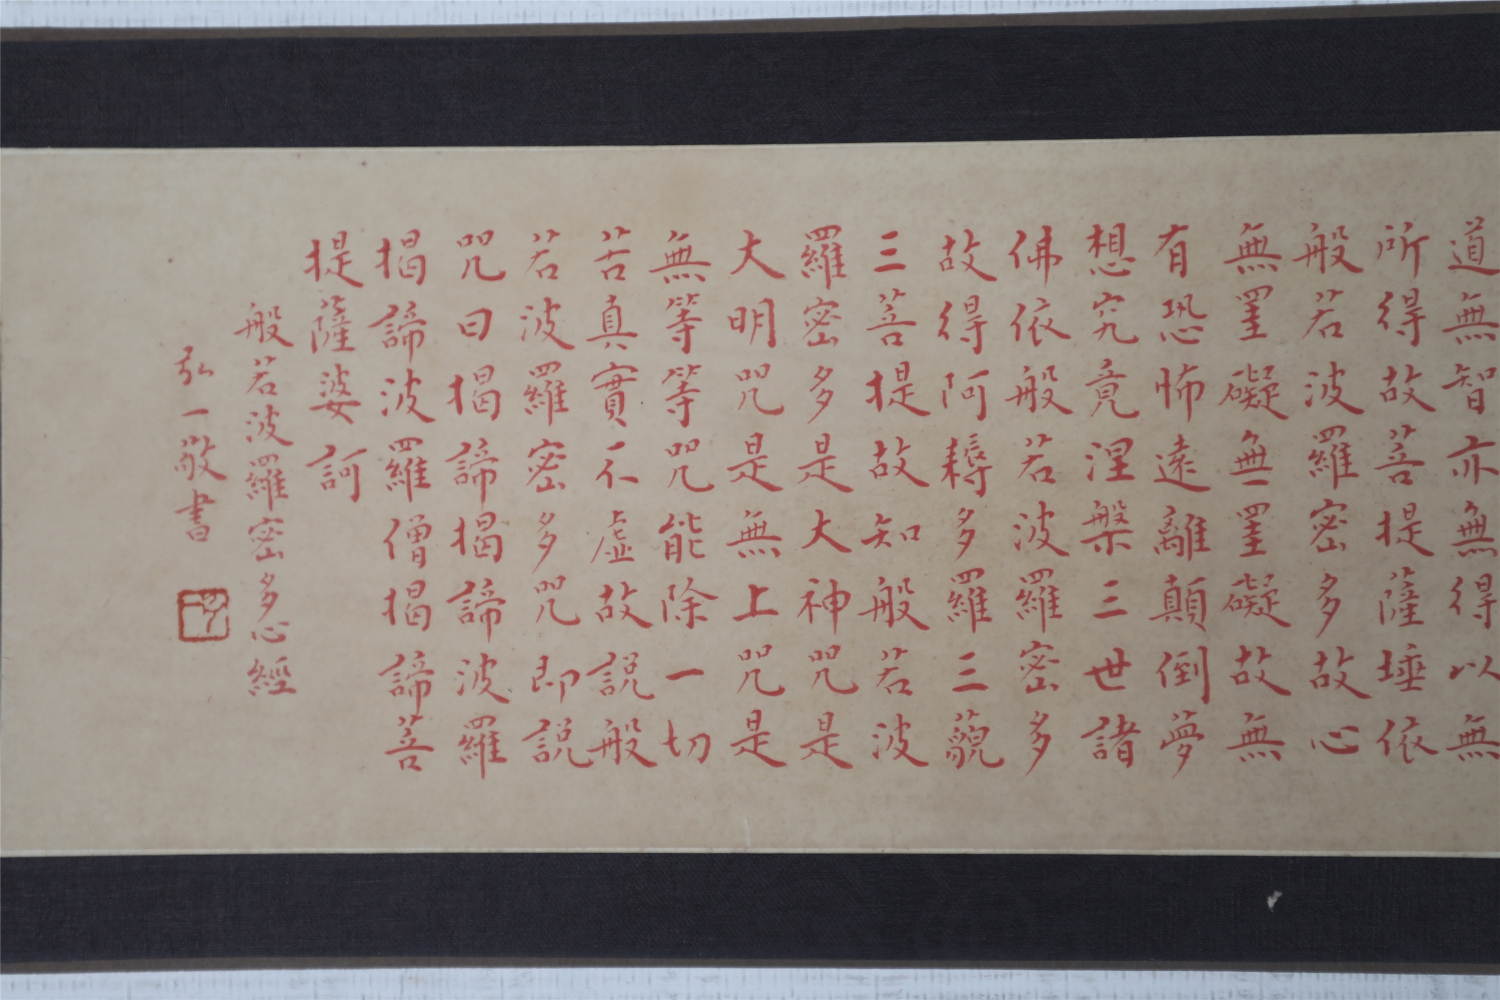 道無智亦無得以無
所得故菩提薩埵依
般若波羅密多故心
無罣礙無罣礙故無
有恐怖遠離顛倒夢
想究竟涅槃三世諸
佛依般若波羅密多
故得阿耨多羅三藐
三菩提故知般若波
羅密多是大神咒是
大明咒是無上咒是
無等等咒能除一切
苦真實不虛故說般
若波羅密多咒即說
咒曰揭諦揭諦波羅
揭諦波羅僧揭諦菩
提薩婆訶
般若波羅密多心經
弘一敬書